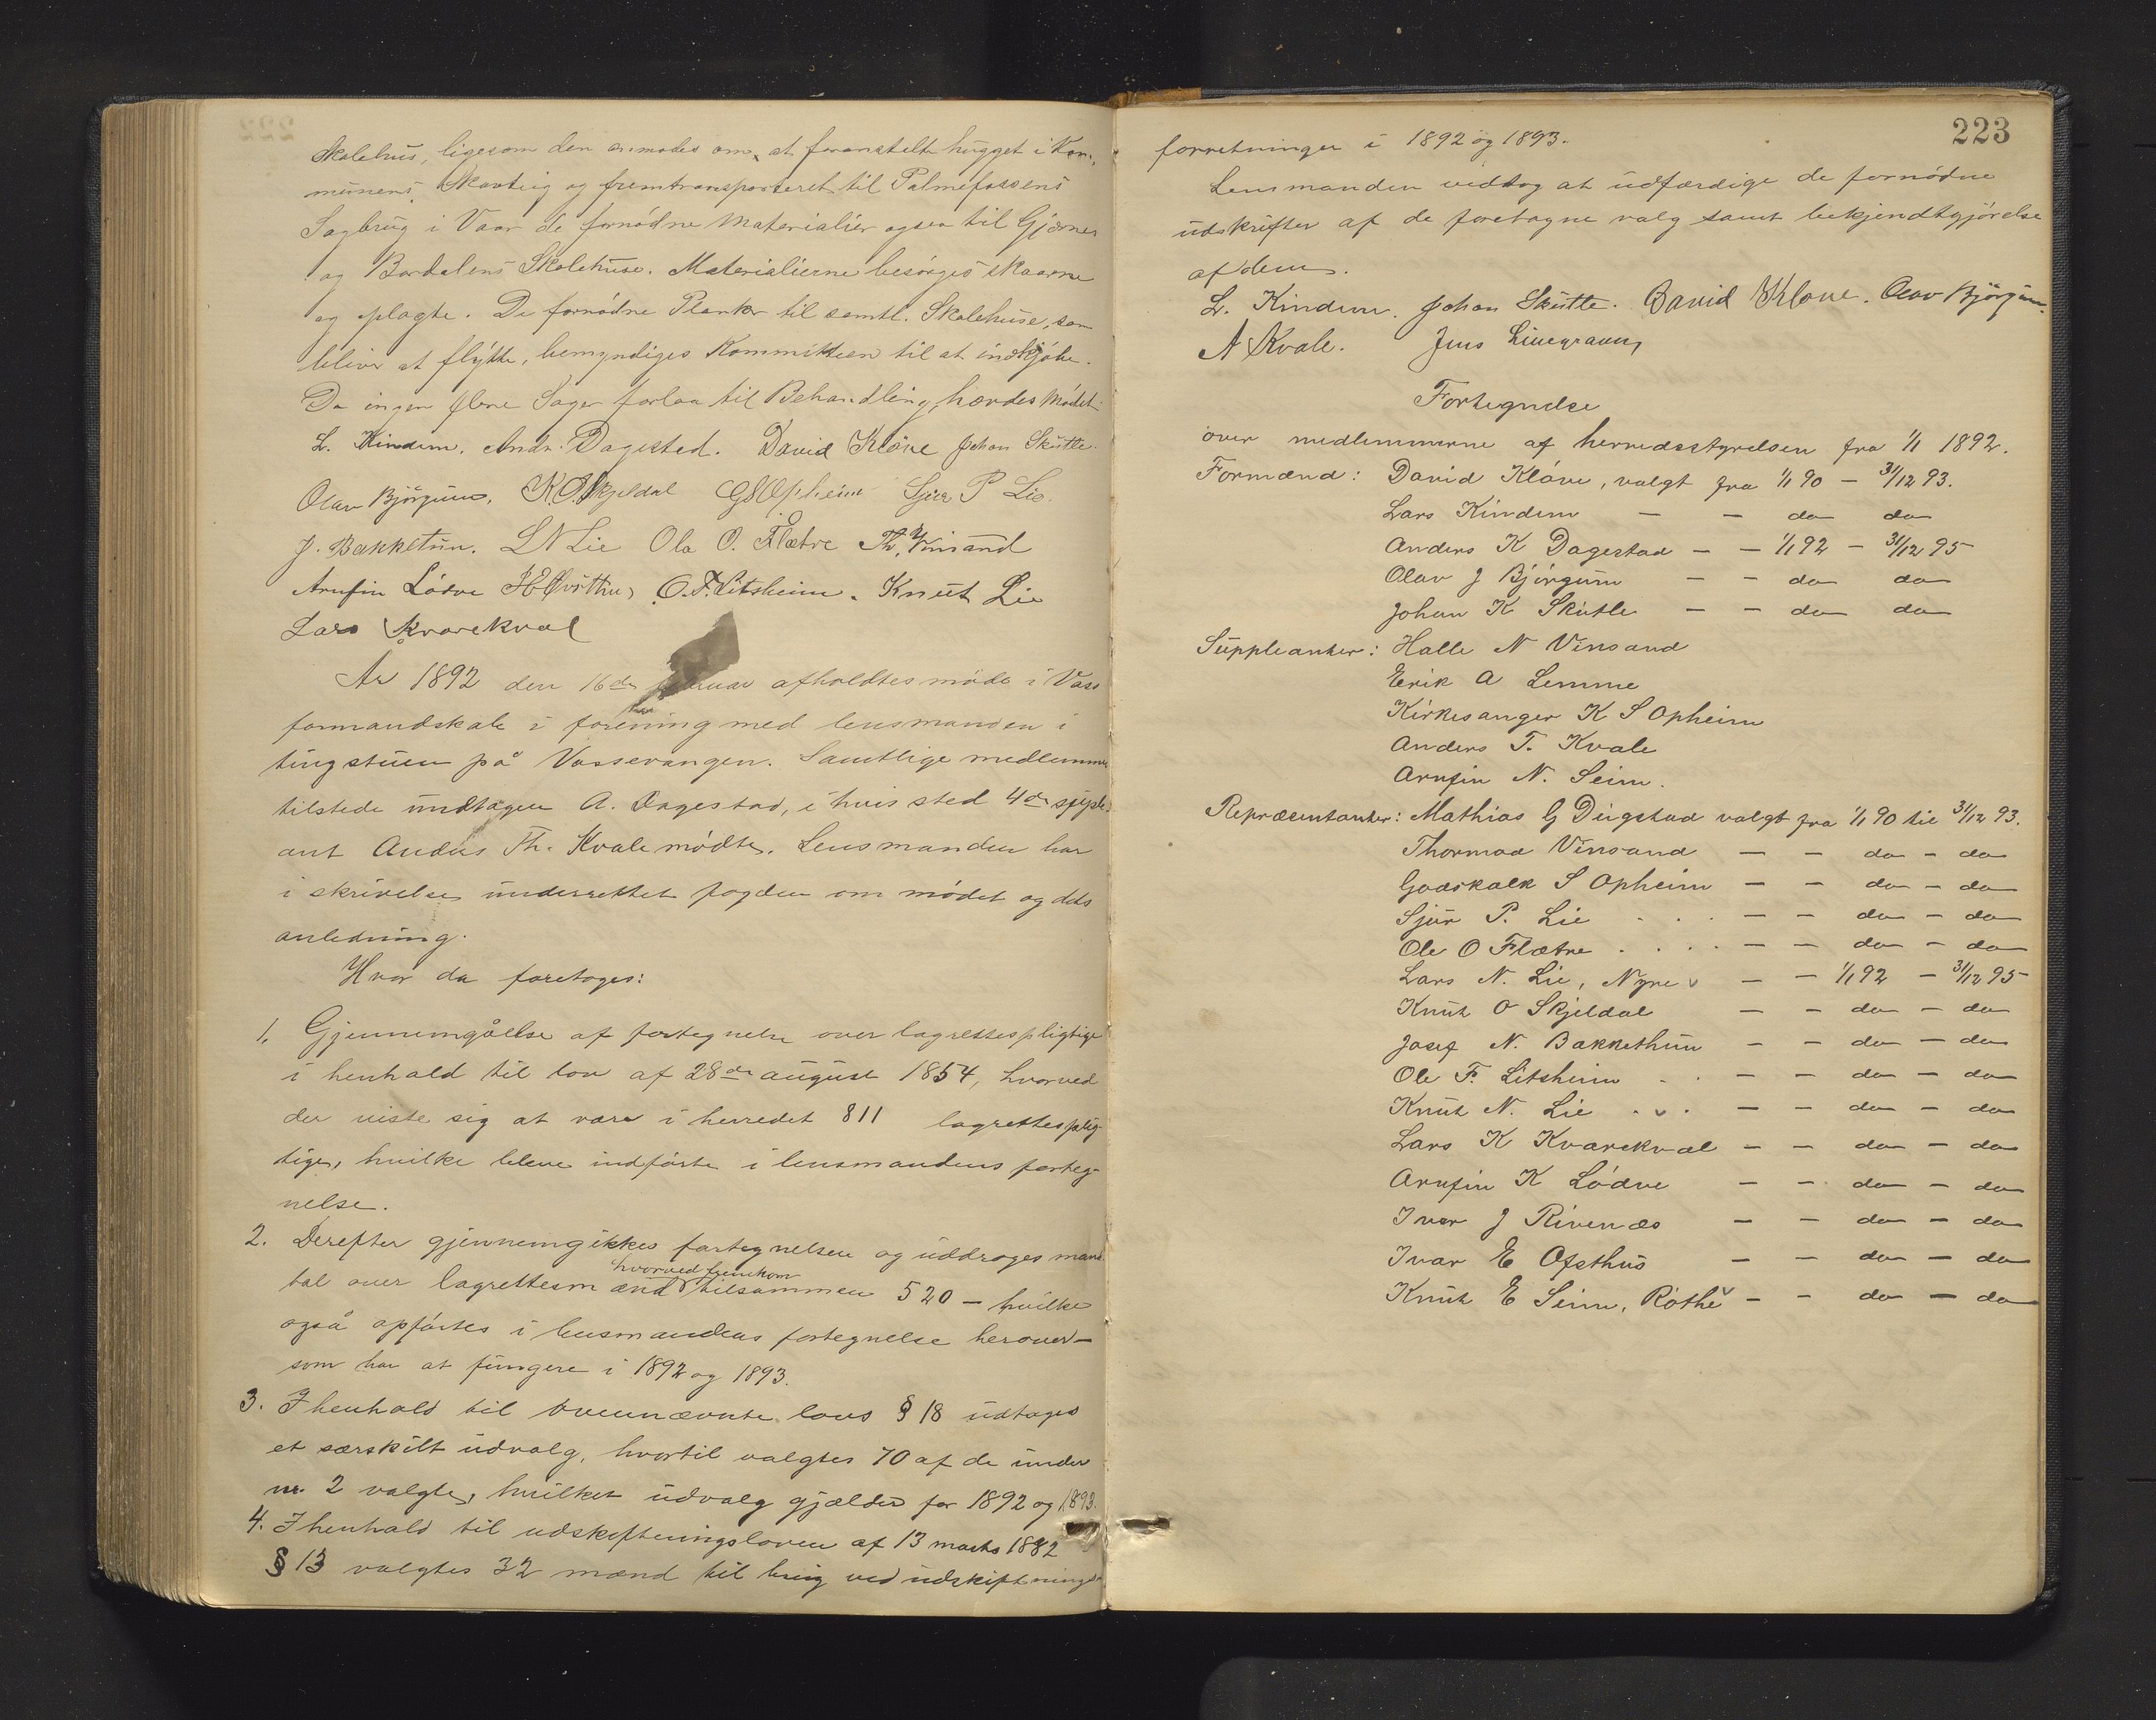 Skolehus, ligesom den anmodes om, at foranstalte hugget i Kom-
munens Skovteig og fremtransporteret til Palmefossens
Sagbrug i Vaar de fornødne Materialier ogsaa til Gjernes
og Bordalens Skolehuse. Materialierne besørges skaarne
og plagte. De fornødne Planker til samtl. Skolehuse, som
bliver at flytte, bemyndiges Kommitteen til at indkjøbe.
Da ingen flere Sager forlaa til Behandling, hævdes Mødet.
L. Kindem. Andr. Dagestad. David Kløve Johan Skutle.
Olav Bjørgum. K. O. Skjeldal GSOpheim Sjur P Lie.
J. Bakketun. L N Lie Ola O. Flætre Th. Vinsand
Arnfin Lødve O. F. Litsheim. Knut Lie
Lars Kvarekval
År 1892 den 16de februar afholdtes møde i Voss
formandskab i forening med lensmanden i
tingstuen på Vossevangen. Samtlige medlemmer
tilstede undtagen A. Dagestad, i hvis sted 4de supple-
ant Anders Th. Kvale mødte. Lensmanden har
i skrivelse underrettet fogden om mødet og dets
anledning.
Hvor da foretoges:
1. Gjennemgåelse af fortegnelse over lagrettespligtige
i henhold til lov af 28de august 1854, hvorved
der viste sig at være i herredet 811 lagrettesplig-
tige, hvilke bleve indførte i lensmandens forteg-
nelse.
2. Derefter gjennemgikkes fortegnelsen og uddroges mand-
tal over lagrettesmænd hvorved fremkom tilsammen 520 – hvilke
også opførtes i lensmandens fortegnelse herover –
som har at fungere i 1892 og 1893.
3. I henhold til ovennævnte lovs § 18 udtoges
et særskilt udvalg, hvortil valgtes 70 af de under
nr. 2 valgte, hvilket udvalg gjælder for 1892 og 1893.
4. I henhold til udskiftningsloven af 13 marts 1882
§ 13 valgtes 32 mænd til brug ved udskiftnings-
223
forretninger i 1892 og 1893.
Lensmanden vedtog at udfærdige de fornødne
udskrifter af de foretagne valg samt bekjendtgjørelse
af dem.
L. Kindem. Johan Skutle. David Kløve. Olav Bjørgum.
A Kvale. Jens Livegraun
Fortegnelse
over medlemmerne af herredsstyrelsen fra 1/1 1892.
Formænd: David Kløve, valgt fra 1/1 90 – 31/12 93.
Lars Kindem – – do do
Anders K Dagestad – – 1/1 92 – 31/12 95
Olav J Bjørgum – – do do
Johan K Skutle – – do do
Suppleanter: Halle N Vinsand
Erik A Lemme
Kirkesanger K S Opheim
Anders T. Kvale
Arnfin N. Seim.
Repræsentanter: Mathias G Dugstad valgt fra 1/1 90 til 31/12 93.
Thormod Vinsand – – do – do
Godskalk S Opheim – – do – do
Sjur P. Lie . . . – – do – do
Ole O Flætre . . . . – – do – do
Lars N. Lie, Nyre v – – 1/1 92 – 31/12 95
Knut O Skjeldal – – do – do
Josef N. Bakkethun – – do – do
Ole F. Litsheim . . – – do – do
Knut N. Lie . v . – – do – do
Lars K Kvarekval – – do – do
Arnfin K Lødve – – do – do
Ivar J Rivenæs – – do – do
Ivar E Ofsthus – – do – do
Knut E Seim, Røthe v – – do – do